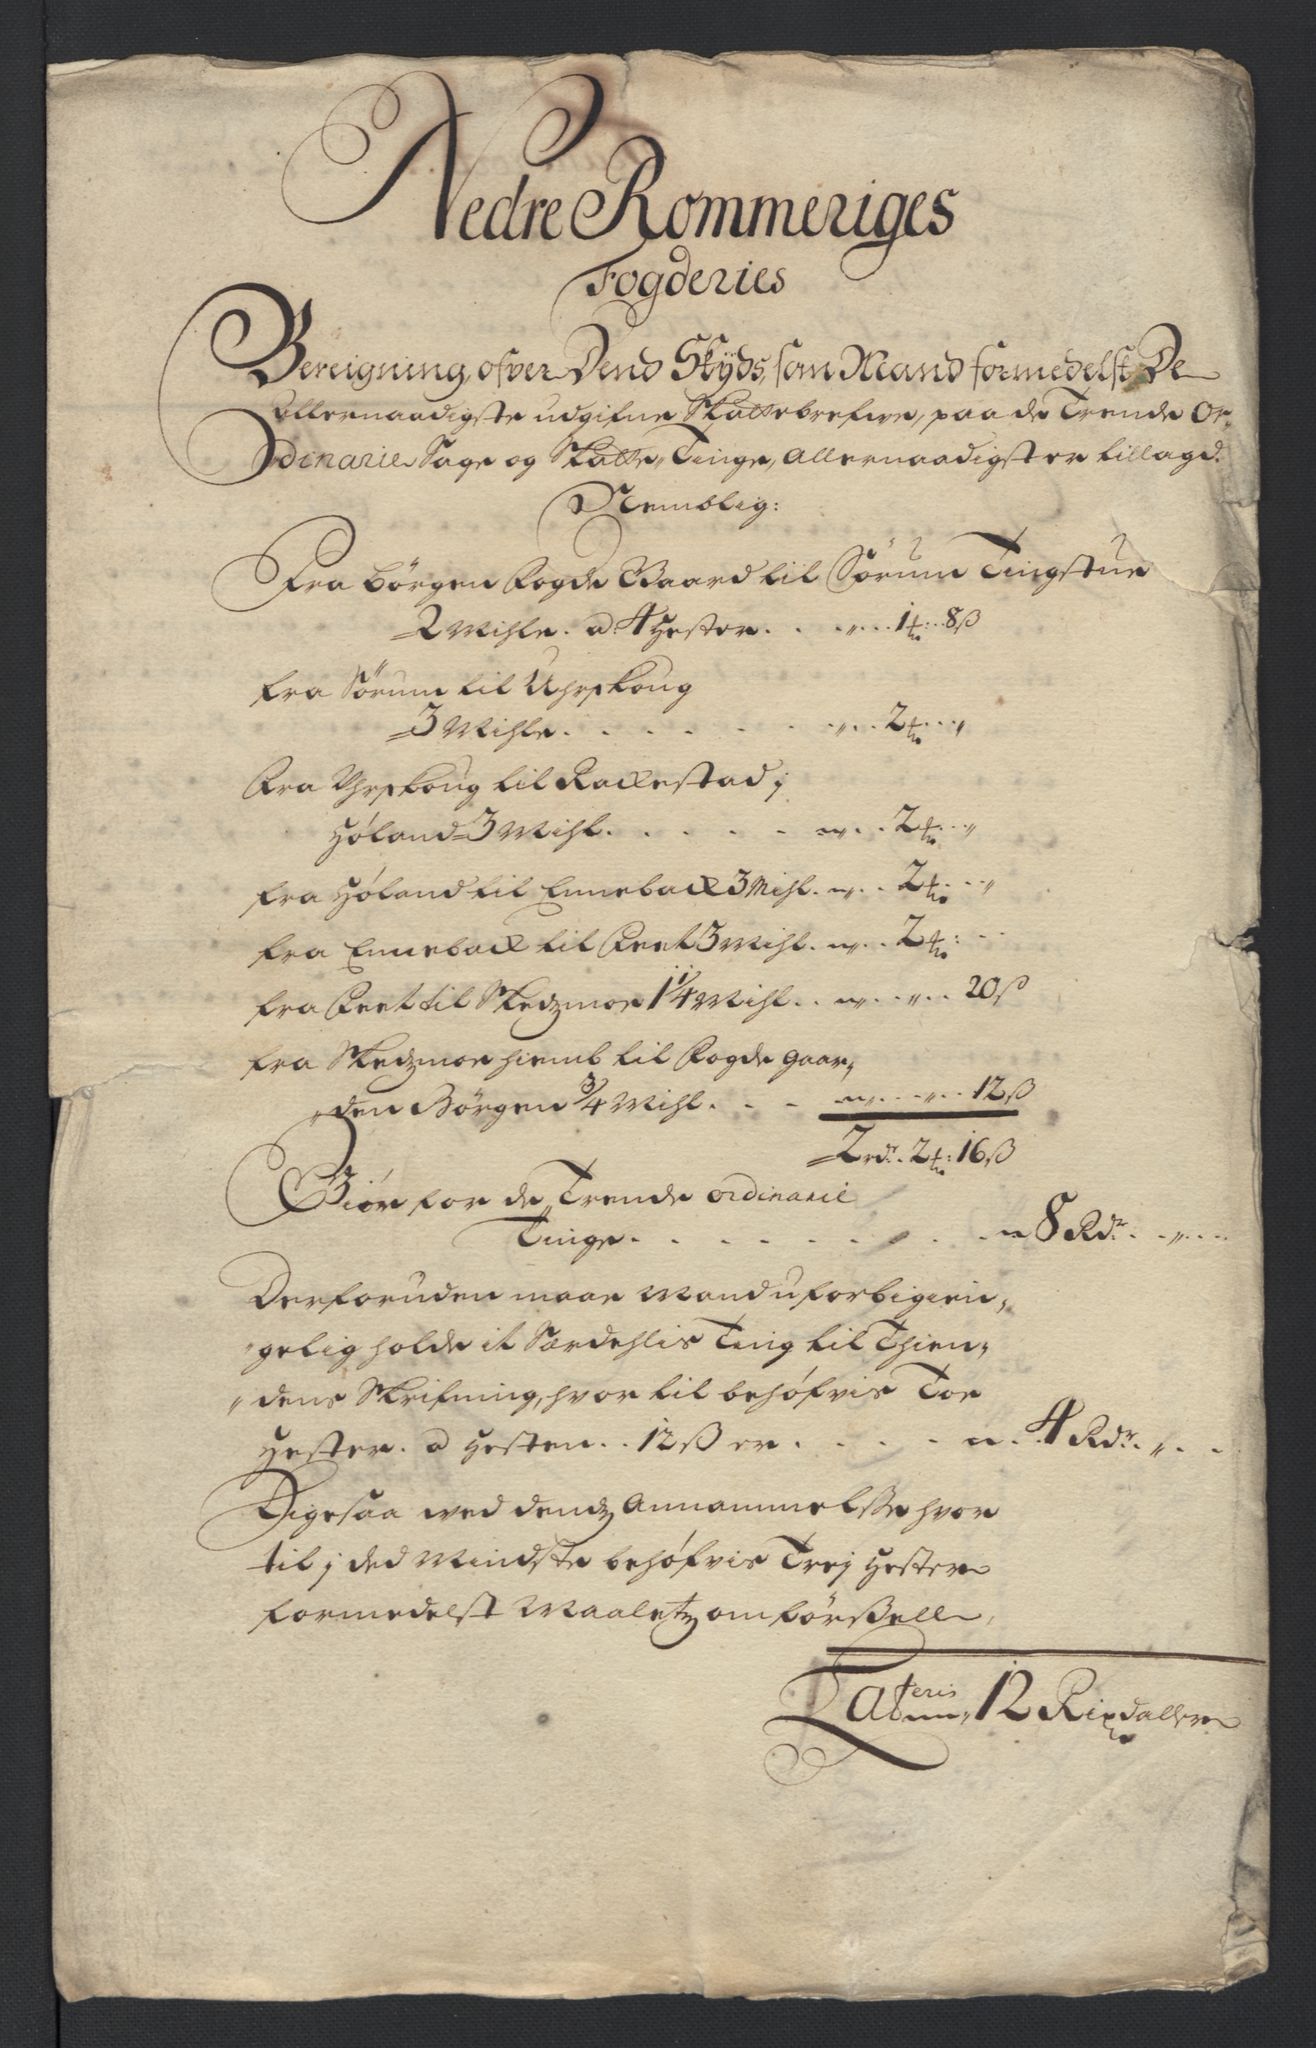 Nedre Rommeriges
Fogderies
Bereigning, ofver Dend Skyds, som Mand formedelst De
allernaadigste udgifne Skattebrefwe, paa de Trende Or-
dinarie Sage og Skatte Tinge, allernaadigst er tillagd.
Nemblig:
Fra Börgen Fogde Gaard til Sörum Tingstue
2 Mihle. a. 4 Hester. . . . „ . . 1 ₰: 8 ß
fra Sörum til Uhrskoug
3 Mihle. . . . . . . „ . . 2 ₰ . . „
Fra Uhrskoug til Rackestad j
Höland 3 Mihl. . . . . „ . . 2 ₰ . . „
fra Höland til Enneback 3 Mihl. „ . . 2 ₰ . . „
fra Enneback til Feet 3 Mihl. „ . . 2 ₰: . .
fra Feet til Skedzmoe 1 1/4 Mihl. . „ . . „ . . 20 ß
fra Skedzmoe hiemb til Fogde gaar„
„den Börgen 3/4 Mihl. . . . „ . . „ . . 12 ß
2 rdr. 2 ₰: 16 ß
Giör for de Trende ordinarie
Tinge. . . . . . . . . 8 Rdr. . „ . .
Derforuden maae Mand uforbigien„
„gelig holde it Særdehlis Ting til Thien„
„dens Skrifning, hvor til behöfvis Toe
Hester. a Hesten. . 12 ß er. . . . . 4 Rdr. „ . .
Ligesaa wed dendz Annammelsse hvor
til j ded Mindste behöfvis Trej Hester
formedelst Maaletz omförßell
Lateris 12 Rixdaller